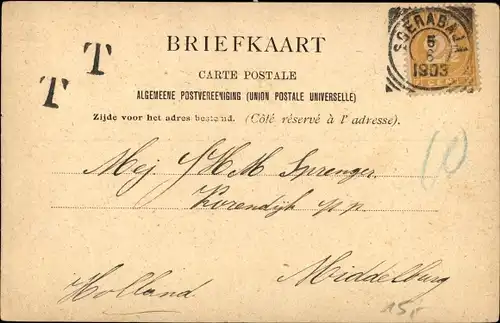 BRIEFKAART
CARTE POSTALE
ALGEMEENE POSTVEREENIGING (UNION POSTALE UNIVERSELLE)
Zijde voor het adres bestemd. (Côté réservé à l'adresse).
T
T
SOERABAJA
5
8
1903
10
Mej. J H M Sprenger.
Korendijk p.p.
Middelburg
Holland.
15,-